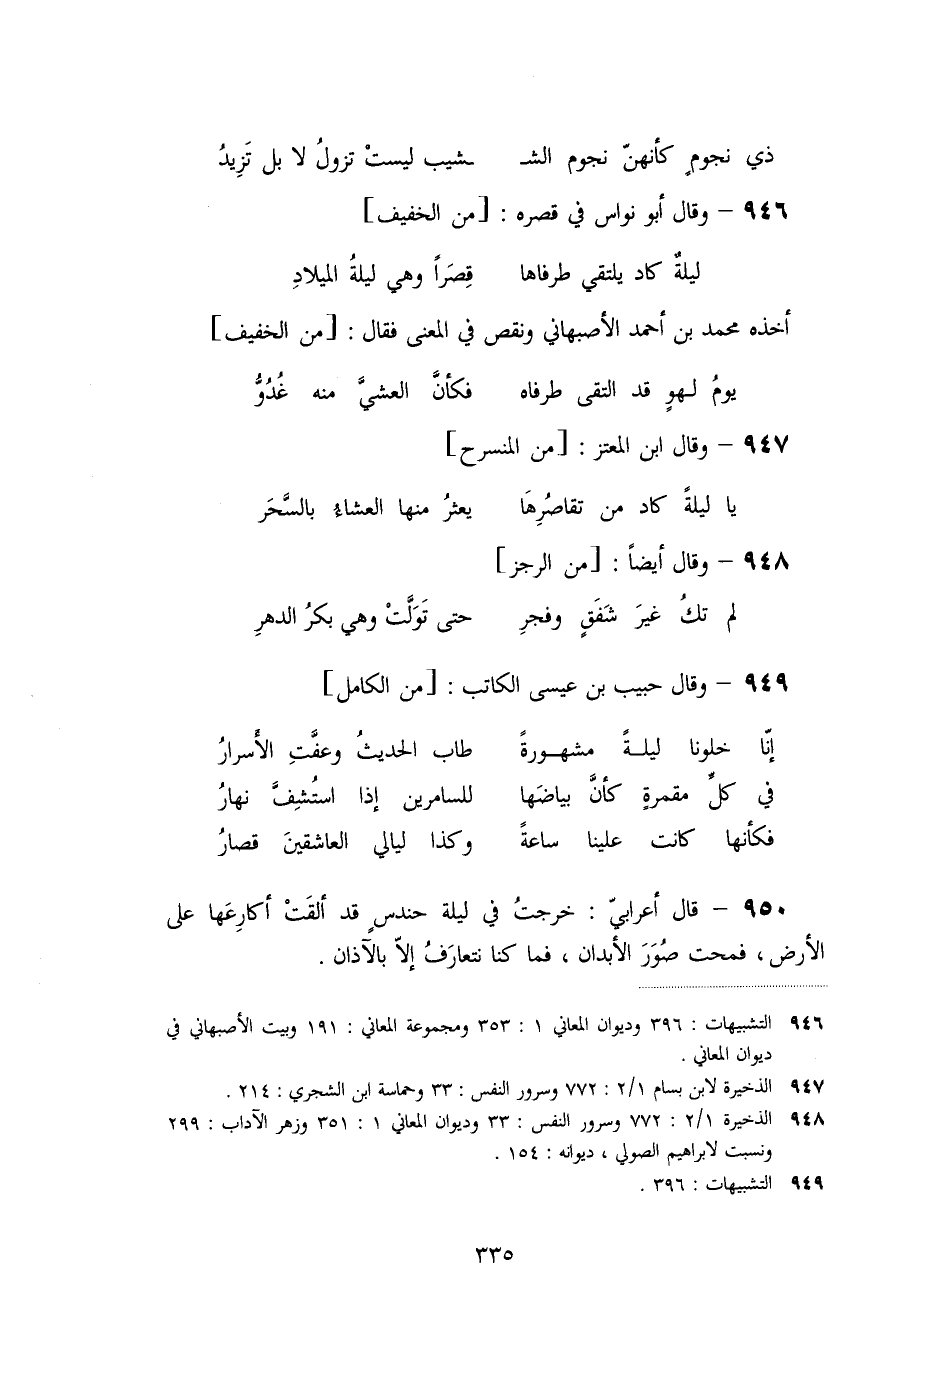 ذي نجومٍ كأنهنّ نجوم الشـ ـشيب ليستْ تزولُ لا بل تَزِيدُ
٩٤٦ – وقال أبو نواس في قصره : [من الخفيف]
ليلةٌ كاد يلتقي طرفاها قِصَراً وهي ليلةُ الميلادِ
أخذه محمد بن أحمد الأصبهاني ونقص في المعنى فقال : [من الخفيف]
يومُ لـهوٍ قد التقى طرفاه فكأنَّ العشيَّ منه غُدُوُّ
٩٤٧ – وقال ابن المعتز : [من المنسرح]
يا ليلةً كاد من تقاصُرِهَا يعثرُ منها العشاءُ بالسَّحَر
٩٤٨ – وقال أيضاً : [من الرجز]
لم تكُ غيرَ شَفَقٍ وفجرِ حتى تَوَلَّتْ وهي بكرُ الدهرِ
٩٤٩ – وقال حبيب بن عيسى الكاتب : [من الكامل]
إنّا خلونا ليلـةً مشهـورةً طاب الحديثُ وعفَّتِ الأَسرارُ
في كلِّ مقمرةٍ كأنَّ بياضَها للسامرين إذا استُشِفَّ نهارُ
فكأنها كانت علينا ساعةً وكذا ليالي العاشقينَ قصارُ
٩٥٠ – قال أعرابيّ : خرجتُ في ليلة حندسٍ قد ألقَتْ أكارِعَها على
الأرض ، فمحت صُوَرَ الأبدان ، فما كنا نتعارَفُ إلاّ بالآذان .
٩٤٦ التشبيهات : ٣٩٦ وديوان المعاني ١ : ٣٥٣ ومجموعة المعاني : ١٩١ وبيت الأصبهاني في
ديوان المعاني .
٩٤٧ الذخيرة لابن بسام ٢/١ : ٧٧٢ وسرور النفس : ٣٣ وحماسة ابن الشجري : ٢١٤ .
٩٤٨ الذخيرة ٢/١ : ٧٧٢ وسرور النفس : ٣٣ وديوان المعاني ١ : ٣٥١ وزهر الآداب : ٢٩٩
ونسبت لابراهيم الصولي ، ديوانه : ١٥٤ .
٩٤٩ التشبيهات : ٣٩٦ .
٣٣٥